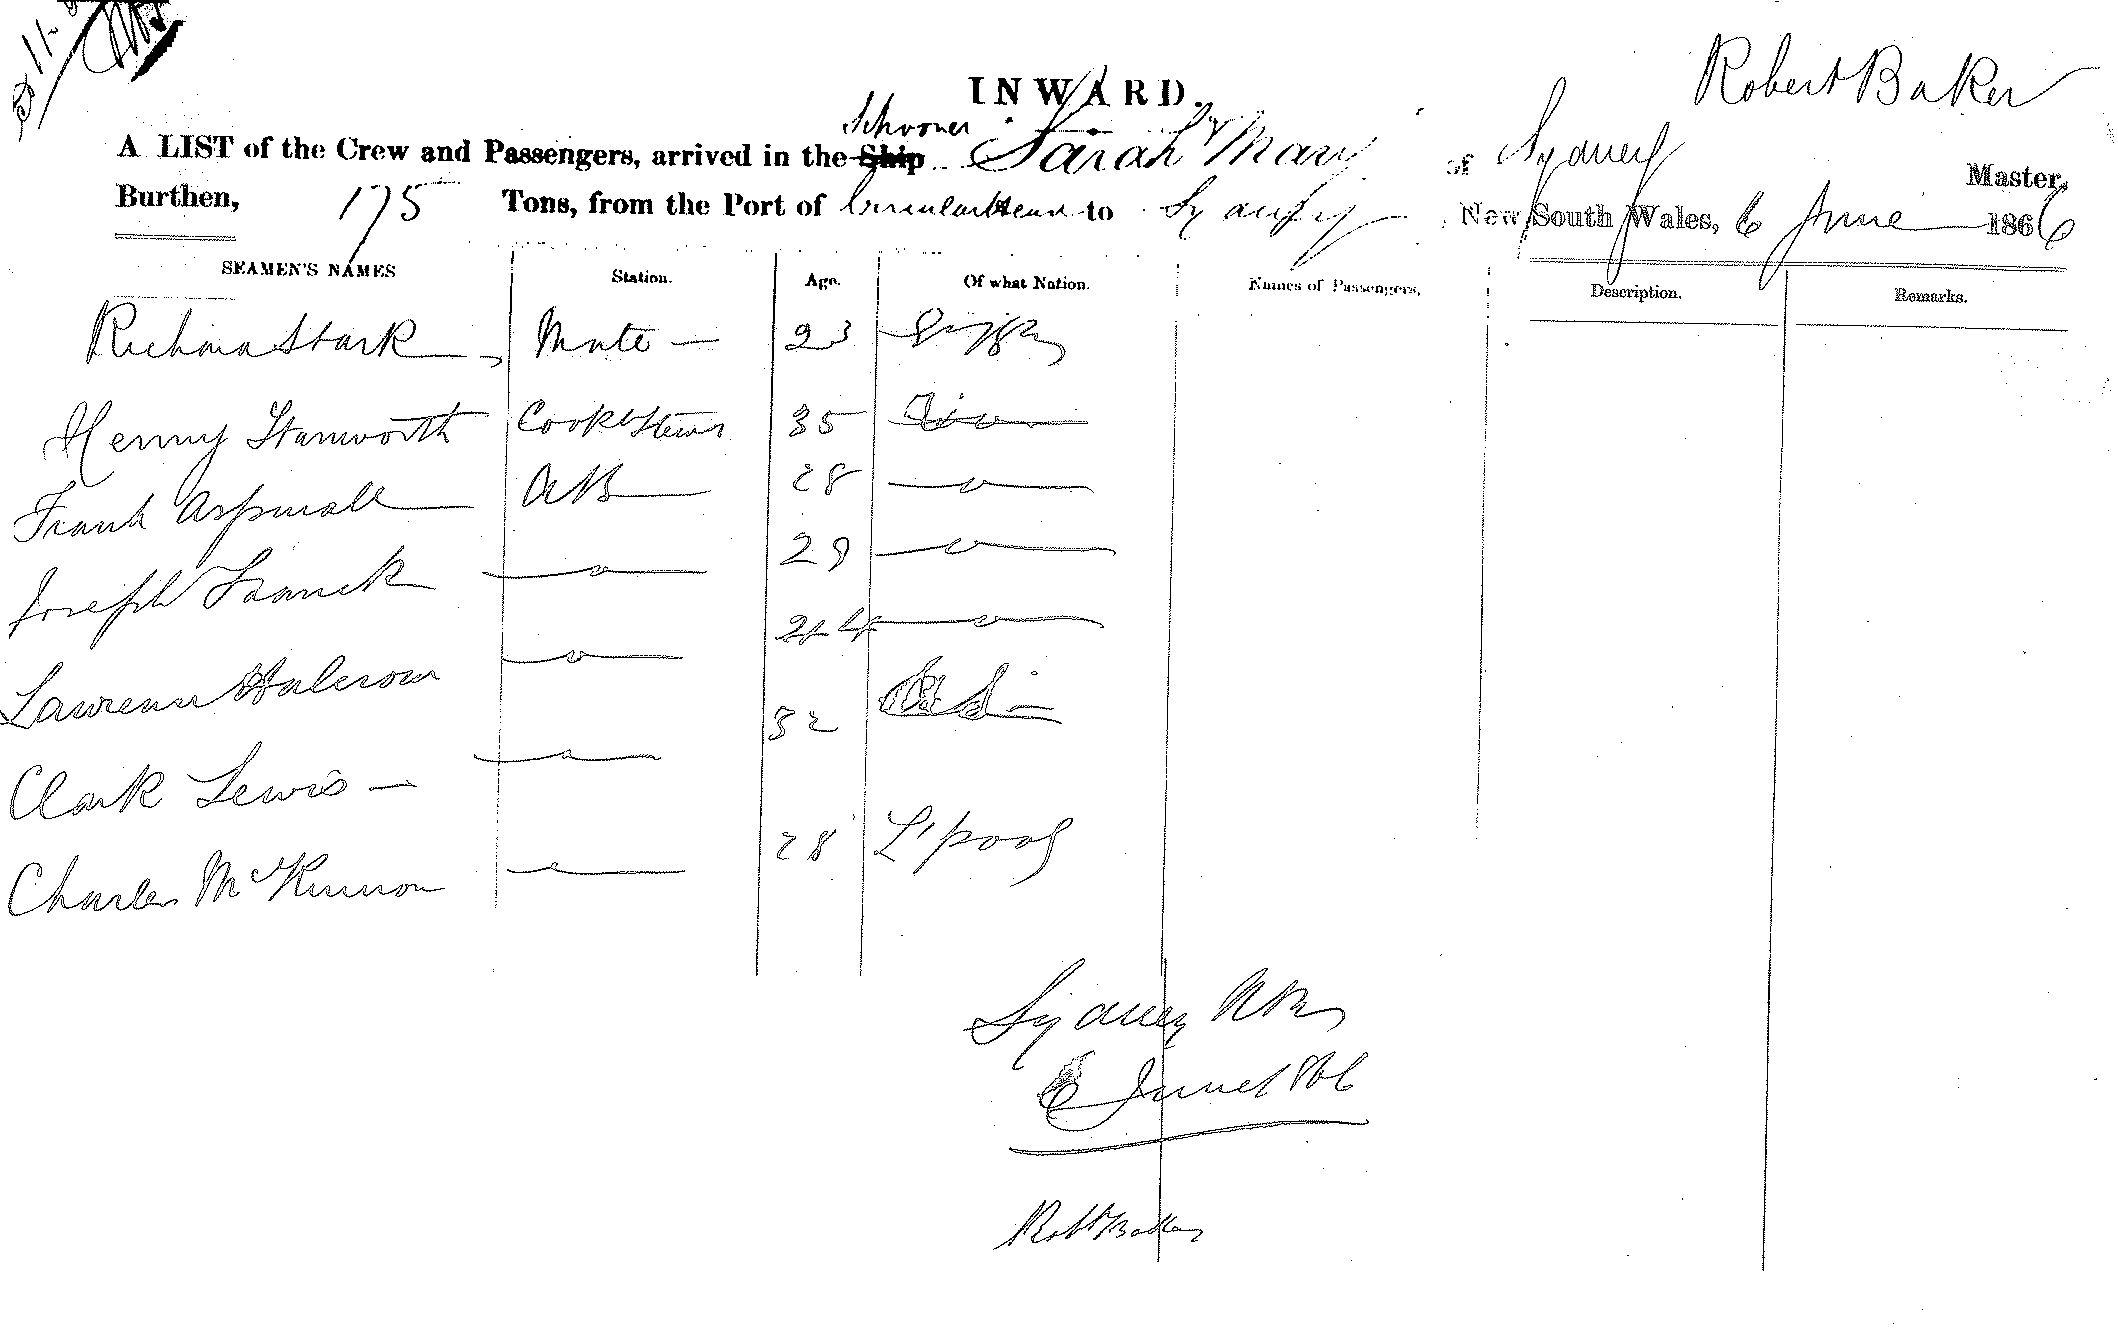 Robert Baker
INWARD.
Schooner
A LIST of the Crew and Passengers, arrived in the Ship Sarah & Mary of Sydney Master,
Burthen, 175 Tons, from the Port of to Sydney New South Wales, 6 June 1866
SEAMEN'S NAMES Station. Age. Of what Nation. Names of Passengers. Description. Remarks.
Stark Mate 23
Henry Stanworth Cook & Stew 35
Frank Aspinall AB 28
Joseph 29
24
Clark Lewis 32
Charles McKinnon 28 L'pool
Sydney
6 June 1866
Robt Baker